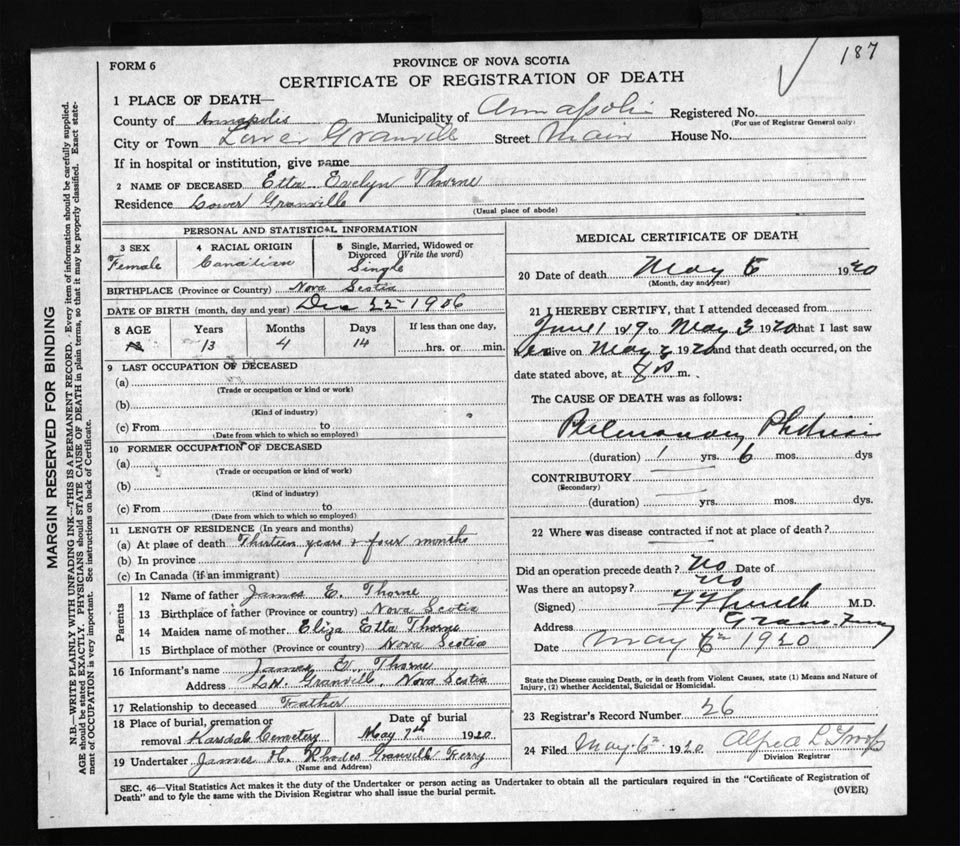 187
FORM 6
PROVINCE OF NOVA SCOTIA
CERTIFICATE OF REGISTRATION OF DEATH
MARGIN RESERVED FOR BINDING
N.B.—WRITE PLAINLY WITH UNFADING INK—THIS IS A PERMANENT RECORD. Every item of information should be carefully supplied.
AGE should be stated EXACTLY. PHYSICIANS should STATE CAUSE OF DEATH in plain terms, so that it may be properly classified. Exact statement of OCCUPATION is very important. See instructions on back of Certificate.
1 PLACE OF DEATH—
County of Annapolis Municipality of Annapolis Registered No.
(For use of Registrar General only)
City or Town Lower Granville Street Main House No.
If in hospital or institution, give name
2 NAME OF DECEASED Etta Evelyn Thorne
Residence Lower Granville
(Usual place of abode)
PERSONAL AND STATISTICAL INFORMATION
3 SEX 4 RACIAL ORIGIN 5 Single, Married, Widowed or Divorced (Write the word)
Female Canadian Single
BIRTHPLACE (Province or Country) Nova Scotia
DATE OF BIRTH (month, day and year) Dec 22 1906
8 AGE Years Months Days If less than one day,
13 4 14 hrs. or min.
9 LAST OCCUPATION OF DECEASED
(a)
(Trade or occupation or kind or work)
(b)
(Kind of industry)
(c) From to
(Date from which to which so employed)
10 FORMER OCCUPATION OF DECEASED
(a)
(Trade or occupation or kind of work)
(b)
(Kind of industry)
(c) From to
(Date from which to which so employed)
11 LENGTH OF RESIDENCE (In years and months)
(a) At place of death Thirteen years & four months
(b) In province
(c) In Canada (if an immigrant)
Parents
12 Name of father James E. Thorne
13 Birthplace of father (Province or country) Nova Scotia
14 Maiden name of mother Eliza Etta Thorne
15 Birthplace of mother (Province or country) Nova Scotia
16 Informant's name James E. Thorne
Address Granville, Nova Scotia
17 Relationship to deceased Father
18 Place of burial, cremation or removal Karsdale Cemetery Date of burial May 7th 1920
19 Undertaker James H. Rhodes Granville Ferry
(Name and Address)
MEDICAL CERTIFICATE OF DEATH
20 Date of death May 5 1920
(Month, day and year)
21 I HEREBY CERTIFY, that I attended deceased from
June 1 1919 to May 3 1920 that I last saw
her alive on May 2 1920 and that death occurred, on the
date stated above, at m.
The CAUSE OF DEATH was as follows:
Pulmonary Phthisis
(duration) 1 yrs. 6 mos. dys
CONTRIBUTORY
(Secondary)
(duration) yrs. mos. dys.
22 Where was disease contracted if not at place of death?
Did an operation precede death? No Date of
Was there an autopsy? No
(Signed) M.D.
Address Gran. Ferry
Date May 6th 1920
State the Disease causing Death, or in death from Violent Causes, state (1) Means and Nature of
Injury, (2) whether Accidental, Suicidal or Homicidal.
23 Registrar's Record Number 26
24 Filed May 6th 1920
Division Registrar
SEC. 46—Vital Statistics Act makes it the duty of the Undertaker or person acting as Undertaker to obtain all the particulars required in the "Certificate of Registration of
Death" and to fyle the same with the Division Registrar who shall issue the burial permit.
(OVER)